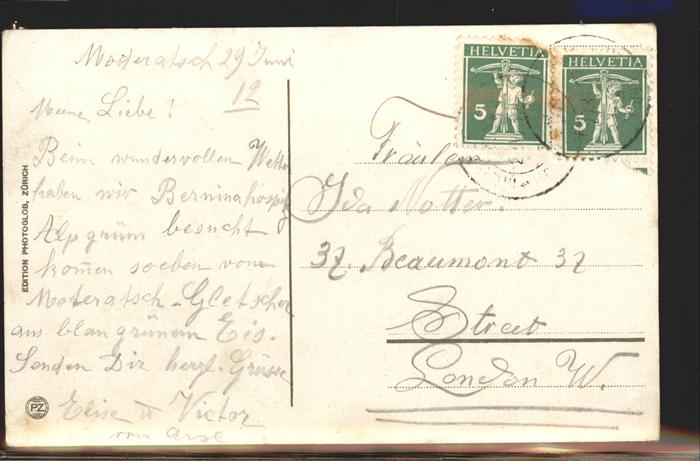 Moderatsch 29 Juni
12
Meine Liebe!
Beim wundervollen Wetter
haben wir Berninahospiz
Alp grüm besucht
kom̅en soeben vom
Moteratsch-Gletscher
aus blaugrünem Eis.
Senden Dir herzl. Grüsse
Elise u Victor
von
EDITION PHOTOGLOB, ZÜRICH
PZ
HELVETIA
5
HELVETIA
5
Fräulein
Ida Notter
37 Beaumont 37
Street
London W.